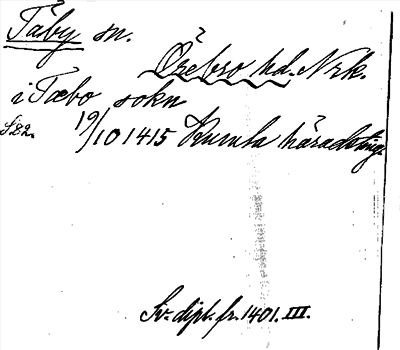 Täby sn.
Örebro hd. Nrk.
i Tæbo sokn
S. 22. 19/10 1415 Kumla häradsting.
Sv. dipl. fr. 1401. III.